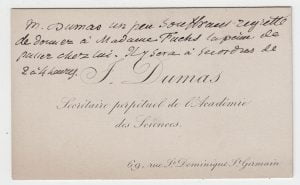 M. Dumas un peu souffrant regrette
de donner à Madame Fuchs la peine de
passer chez lui. Il sera à ses ordres de
2 à 4 heures.
J. Dumas
Secrétaire perpétuel de l'Académie
des Sciences.
69, rue St Dominique St Germain